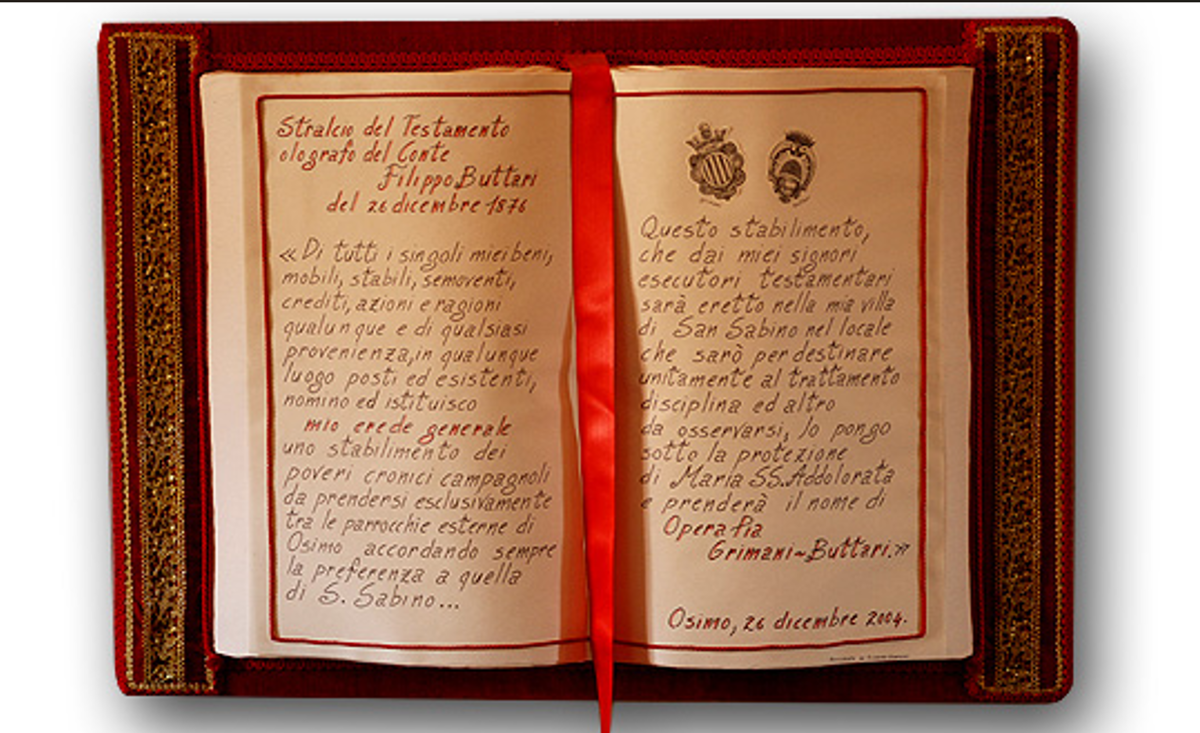 Stralcio del Testamento
olografo del Conte
Filippo Buttari
del 26 dicembre 1876
«Di tutti i singoli miei beni,
mobili, stabili, semoventi,
crediti, azioni e ragioni
qualunque e di qualsiasi
provenienza, in qualunque
luogo posti ed esistenti,
nomino ed istituisco
mio erede generale
uno stabilimento dei
poveri cronici campagnoli
da prendersi esclusivamente
tra le parrocchie esterne di
Osimo accordando sempre
la preferenza a quella
di S. Sabino...
Questo stabilimento,
che dai miei signori
esecutori testamentari
sarà eretto nella mia villa
di San Sabino nel locale
che sarò per destinare
unitamente al trattamento
disciplina ed altro
da osservarsi, lo pongo
sotto la protezione
di Maria SS. Addolorata
e prenderà il nome di
Opera Pia
Grimani-Buttari.»
Osimo, 26 dicembre 2004.